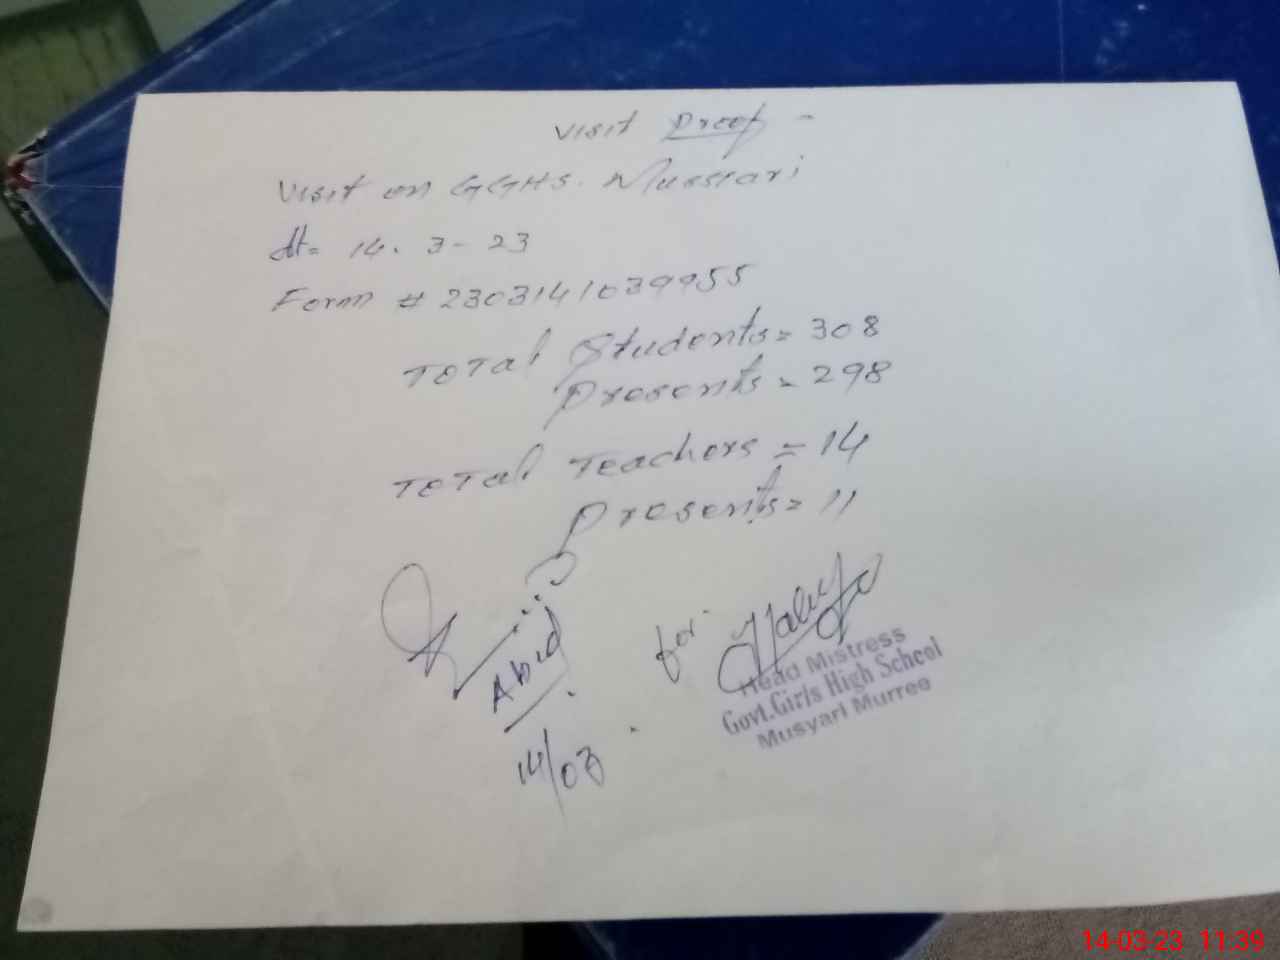 Visit Proof -
Visit on GGHS. Mussiari
dt= 14. 3- 23
Form # 2303141039955
Total Students= 308
Presents = 298
Total Teachers = 14
Presents= 11
Abid
14/03
for
Head Mistress
Govt.Girls High School
Musyari Murree
14-03-23 11:39